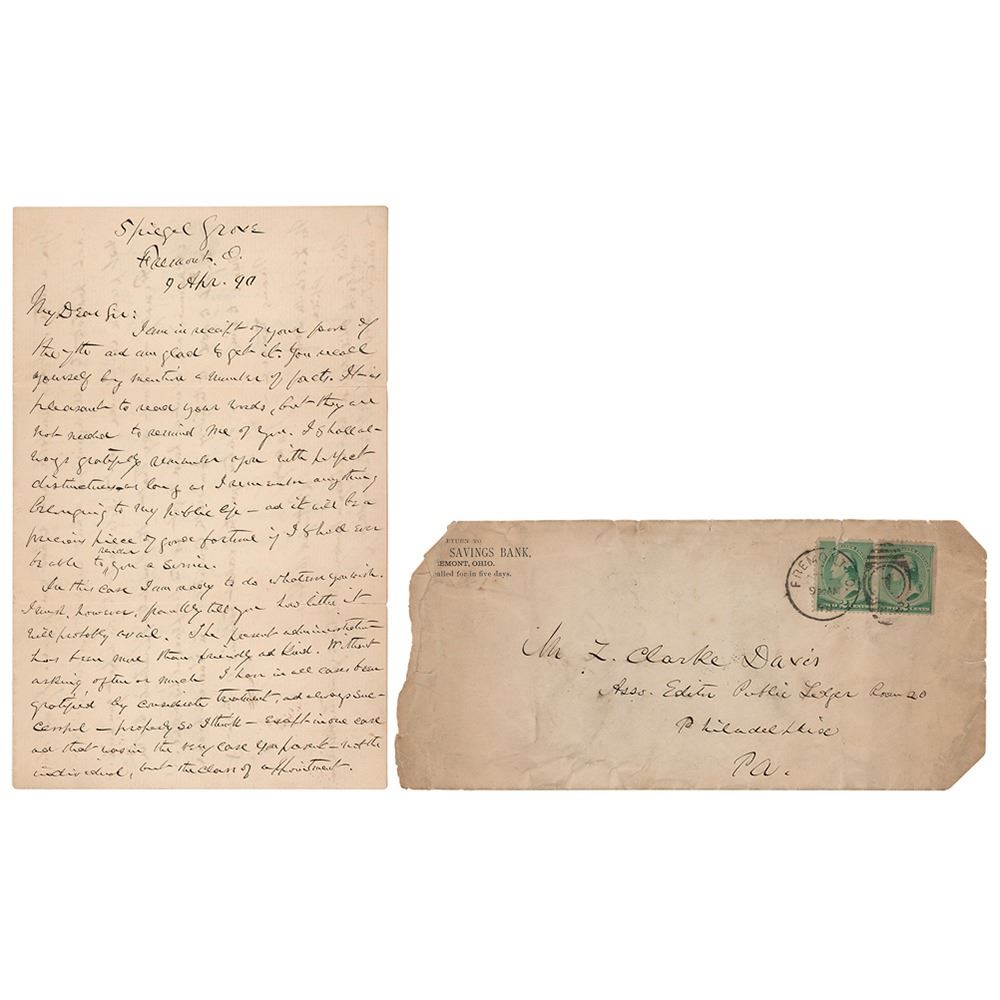 Spiegel Grove
Fremont. O.
9 Apr. 90
My Dear Sir:
I am in receipt of your favor of
the 7th and am glad to get it. You recall
yourself by mention a number of facts. It is
pleasant to read your words, but they are
not needed to remind me of you. I shall al-
ways gratefully remember you with perfect
distinctness as long as I remember anything
belonging to my public life — ad it will be a
precious piece of good fortune if I shall ever
be able to render you a service.
In this case I am ready to do whatever you wish.
I must, however, frankly tell you how little it
will probably avail. The present administration
has been more than friendly ad kind. Without
asking often or much I have in all cases been
gratified by considerate treatment, ad always suc-
cessful — properly so I think — except in one case
ad that was in the very case you present — not the
individual, but the class of appointment.
ETURN TO
SAVINGS BANK,
EMONT, OHIO.
called for in five days.
FREMONT
9 AM
TWO CENTS
Mr L. Clarke Davis
Asso. Editor Public Ledger Room 20
Philadelphia
Pa.